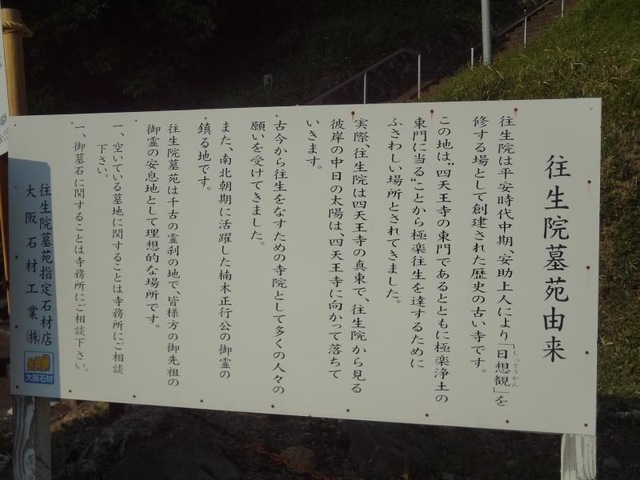 往生院墓苑由来
往生院は平安時代中期、安助上人により「日想観」を
じっそうかん
修する場として創建された歴史の古い寺です。
この地は、"四天王寺の東門であるとともに極楽浄土の
東門に当る"ことから極楽往生を達するために
ふさわしい場所とされてきました。
実際、往生院は四天王寺の真東で、往生院から見る
彼岸の中日の太陽は、四天王寺に向かって落ちて
いきます。
古今から往生をなすための寺院として多くの人々の
願いを受けてきました。
また、南北朝期に活躍した楠木正行公の御霊の
鎮る地です。
往生院墓苑は千古の霊刹の地で、皆様方の御先祖の
御霊の安息地として理想的な場所です。
一、空いている墓地に関することは寺務所にご相談
下さい。
一、御墓石に関することは寺務所にご相談下さい。
往生院墓苑指定石材店
大阪石材工業㈱
大阪石材